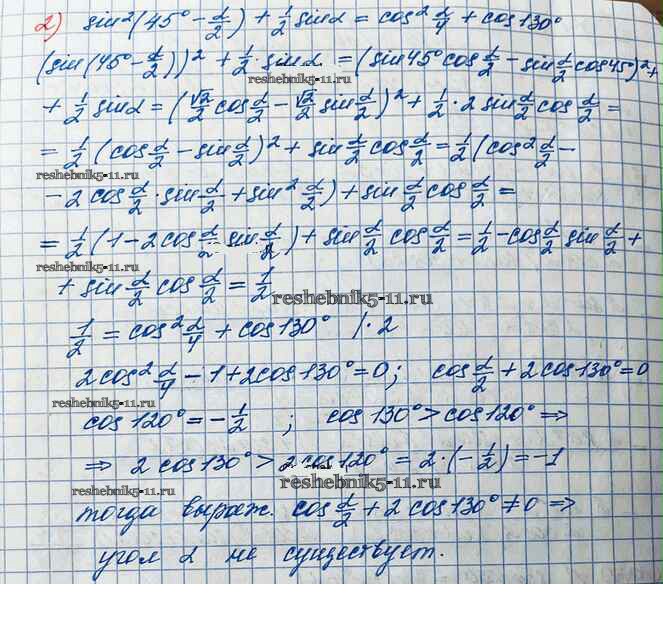 2) sin²(45° - α/2) + 1/2 sinα = cos² α/4 + cos130°
(sin(45° - α/2))² + 1/2 sinα = (sin45° cos α/2 - sin α/2 cos45°)² +
+ 1/2 sinα = (√2/2 cos α/2 - √2/2 sin α/2)² + 1/2 · 2 sin α/2 cos α/2 =
= 1/2 (cos α/2 - sin α/2)² + sin α/2 cos α/2 = 1/2 (cos² α/2 -
reshebnik5-11.ru
- 2 cos α/2 · sin α/2 + sin² α/2) + sin α/2 cos α/2 =
= 1/2 (1 - 2 cos α/2 sin α/2) + sin α/2 cos α/2 = 1/2 - cos α/2 sin α/2 +
reshebnik5-11.ru
+ sin α/2 cos α/2 = 1/2
reshebnik5-11.ru
1/2 = cos² α/4 + cos130° /·2
2cos² α/4 - 1 + 2cos130° = 0; cos α/2 + 2cos130° = 0
reshebnik5-11.ru
cos120° = -1/2 ; cos130° > cos120° ⇒
⇒ 2cos130° > 2cos120° = 2·(-1/2) = -1
reshebnik5-11.ru
reshebnik5-11.ru
тогда выраж. cos α/2 + 2cos130° ≠ 0 ⇒
угол α не существует.